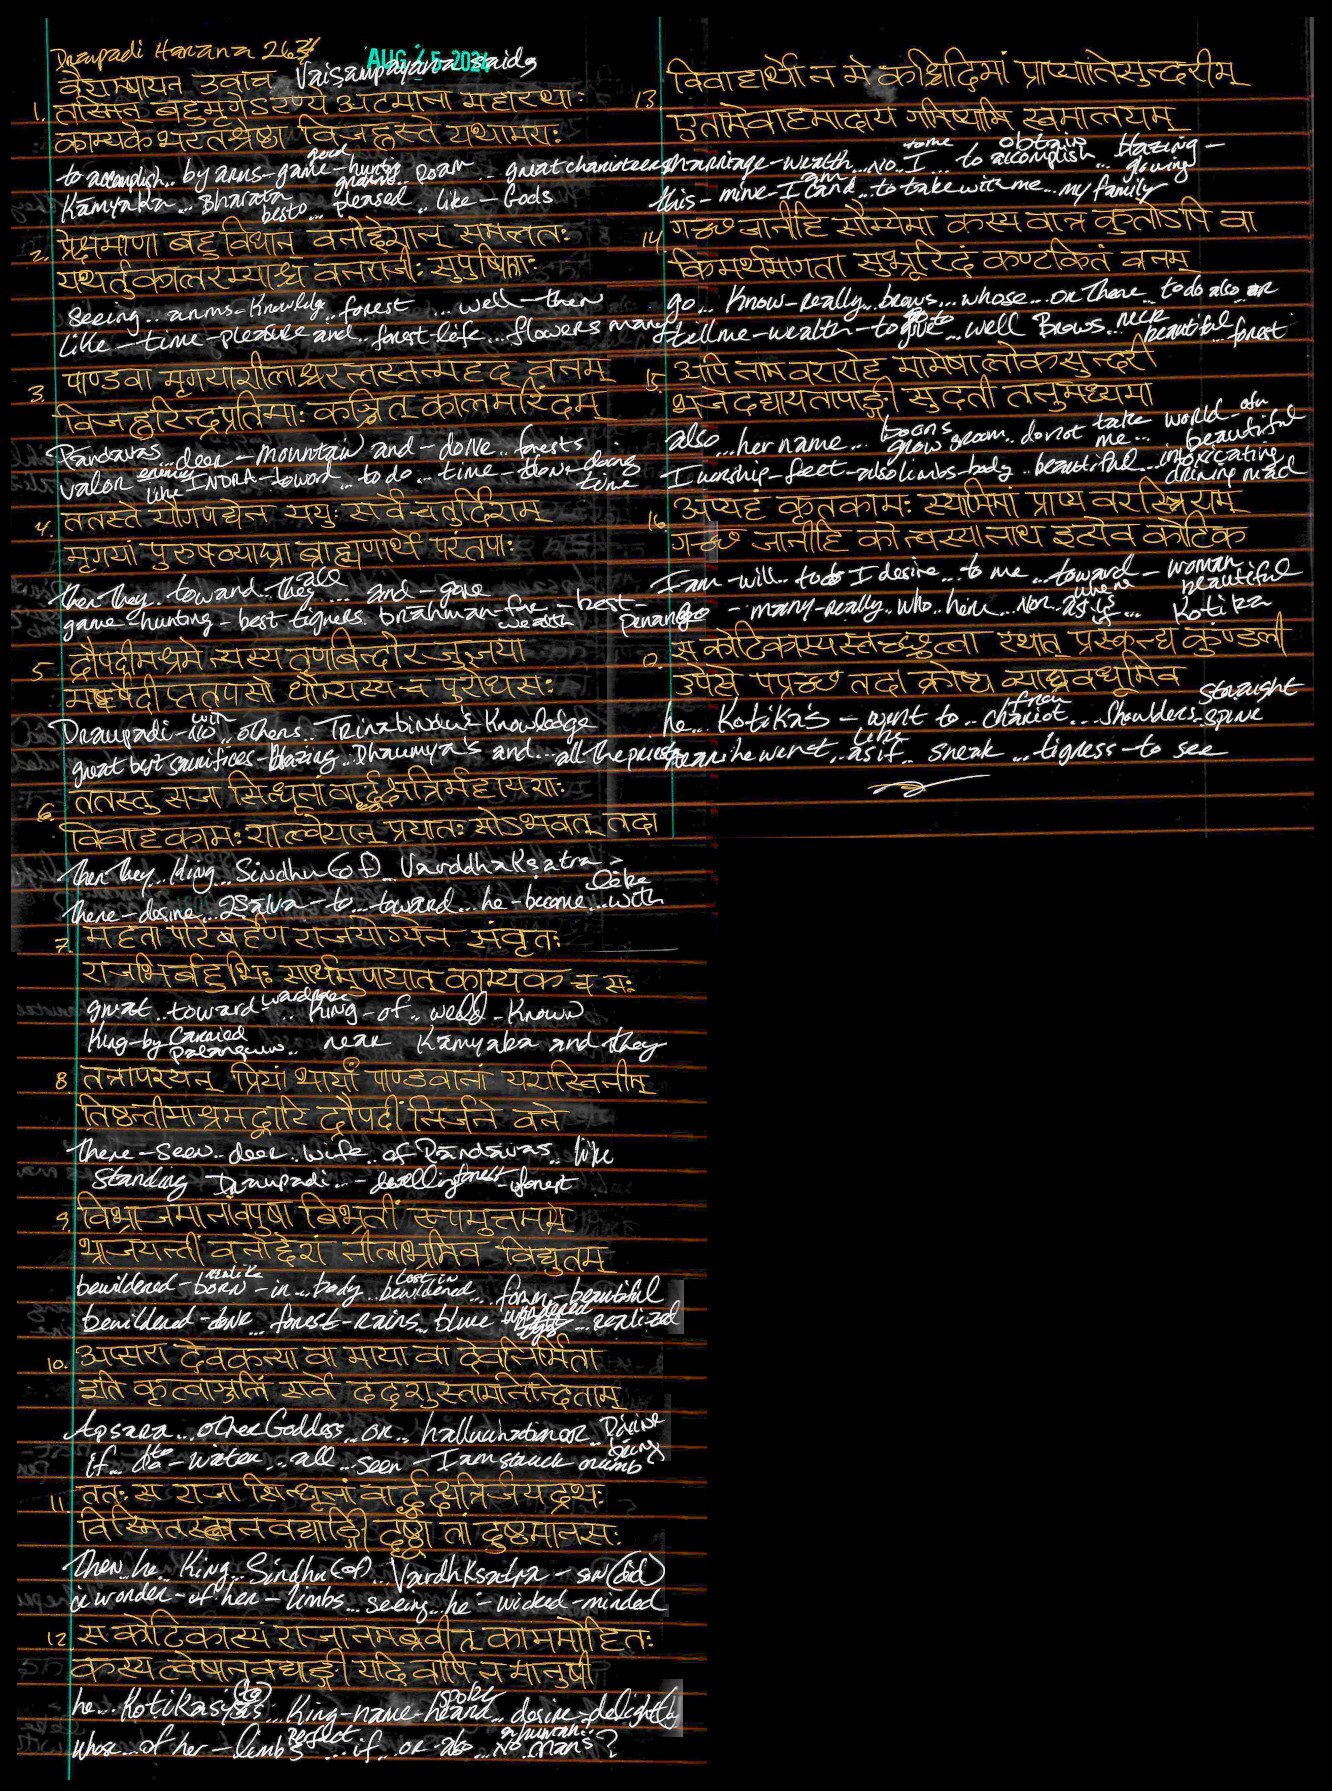 Draupadi Harana 264
AUG 25 2024
वैशम्पायन उवाच Vaisampayana said
1. तस्मिन् बहुमृगेऽरण्ये अटमाना महारथाः
काम्यके भरतश्रेष्ठा विजह्रुस्ते यथामराः
to accomplish.. by arms-game-hunting good grounds.. roam ... great charioteers
Kamyaka ... Bharata best ... pleased .. like - Gods
2. प्रेक्षमाणा बहुविधान् वनोद्देशान् समन्ततः
यथर्तुकालरम्याश्च वनराजीः सुपुष्पिताः
seeing ... arms-Knowledge... forest ... well-then
like - time-pleasure and.. forest-life... flowers many
3. पाण्डवा मृगयाशीलाश्चरन्तस्तन्महद् वनम्
विजह्रुरिन्द्रप्रतिमाः कञ्चित् कालमरिंदम्
Pandavas deer-mountain and-done.. forests
valor enemies like INDRA-toward... to do... time-
4. ततस्ते यौगपद्येन ययुः सर्वे चतुर्दिशम्
मृगयां पुरुषव्याघ्रा ब्राह्मणार्थे परंतपाः
then they.. toward.. they all ... and-gave
game hunting - best tigers brahman-for-wealth - best-
5. द्रौपदीमाश्रमे न्यस्य तृणबिन्दोरनुज्ञया
महर्षेर्दीप्ततपसो धौम्यस्य च पुरोधसः
Draupadi-with... others... Trinabindu's Knowledge
great best sacrifices-blazing... Dhaumya's and... all the priests
6. ततस्तु राजा सिन्धूनां वार्द्धक्षत्रिर्महायशाः
विवाहकामः शाल्वेयान् प्रयातः सोऽभवत् तदा
then they.. King... Sindhu (of)... Varddhaksatra->
there-desire... Salva-to... toward... he-become... like with
7. महता परिबर्हेण राजयोग्येन संवृतः
राजभिर्बहुभिः सार्धमुपायात् काम्यकं च सः
great.. toward ... King-of.. well-Known
King-by carried palanquin.. near Kamyaka and they
8. तत्रापश्यत् प्रियां भार्यां पाण्डवानां यशस्विनीम्
तिष्ठन्तीमाश्रमद्वारि द्रौपदीं निर्जने वने
there-seen.. deer.. wife.. of Pandavas.. like
standing Draupadi... - dwelling forest - forest
9. विभ्राजमानां वपुषा बिभ्रतीं रूपमुत्तमम्
भ्राजयन्तीं वनोद्देशं नीलाभ्रमिव विद्युतम्
bewildered-born-in... body.. lost in bewildered... form-beautiful
bewildered-done... forest-rains... blue ... realized
10. अप्सरा देवकन्या वा माया वा देवनिर्मिता
इति कृत्वाञ्जलिं सर्वे ददृशुस्तामनिन्दिताम्
Apsara... other Goddess... or.. halluchation or.. Divine being
if... do to-water... all... seen-I am struck numb
11. ततः स राजा सिन्धूनां वार्द्धक्षत्रिर्जयद्रथः
विस्मितस्त्वनवद्याङ्गीं दृष्ट्वा तां दुष्टमानसः
then he.. King... Sindhu (of)... Vardhksatra-son (did)
a wonder-of her-limbs... seeing.. he-wicked-minded
12. स कोटिकास्यं राजानमब्रवीत् काममोहितः
कस्य त्वेषानवद्याङ्गी यदि वापि न मानुषी
he... Kotikasyas (to)... King-name-heard spoke... desire-delight
whose...of her-limbs perfect... if... or also... no mans a human?
13. विवाहार्थो न मे कश्चिदिमां प्राप्यातिसुन्दरीम्
एतामेवाहमादाय गमिष्यामि स्वमालयम्
marriage-wealth... no.. I to me... to accomplish obtain... blazing-glowing
this-mine-I am and... to take with me... my family
14. गच्छ जानीहि सौम्येमां कस्य वात्र कुतोऽपि वा
किमर्थमागता सुभ्रूरिदं कण्टकितं वनम्
go... Know-really.. brows... whose... or there... to do also or
tell me-wealth-to go to... well Brows... beautiful... forest
15. अपि नाम वरारोहा मामेषा लोकसुन्दरी
भजेदद्यायतापाङ्गी सुदती तनुमध्यमा
also... her name... boons grow groom.. do not take me... world-of a beautiful
I worship-feet-also limbs-body.. beautiful... intoxicating
16. अप्यहं कृतकामः स्यामिमां प्राप्य वरस्त्रियम्
गच्छ जानीहि को न्वस्या नाथ इत्येव कोटिक
I am-will.. to do I desire... to me... toward-woman beautiful
go - many-really.. who.. here... Nor.. as is... Kotika
स कोटिकास्यस्तच्छ्रुत्वा रथात् प्रस्कन्द्य कुण्डली
उपेत्य पप्रच्छ तदा क्रोष्टा व्याघ्रवधूमिव
he.. Kotika's - went to.. chariot from... shoulders-spine straight
near he went.. as if like.. sneak... tigress-to see